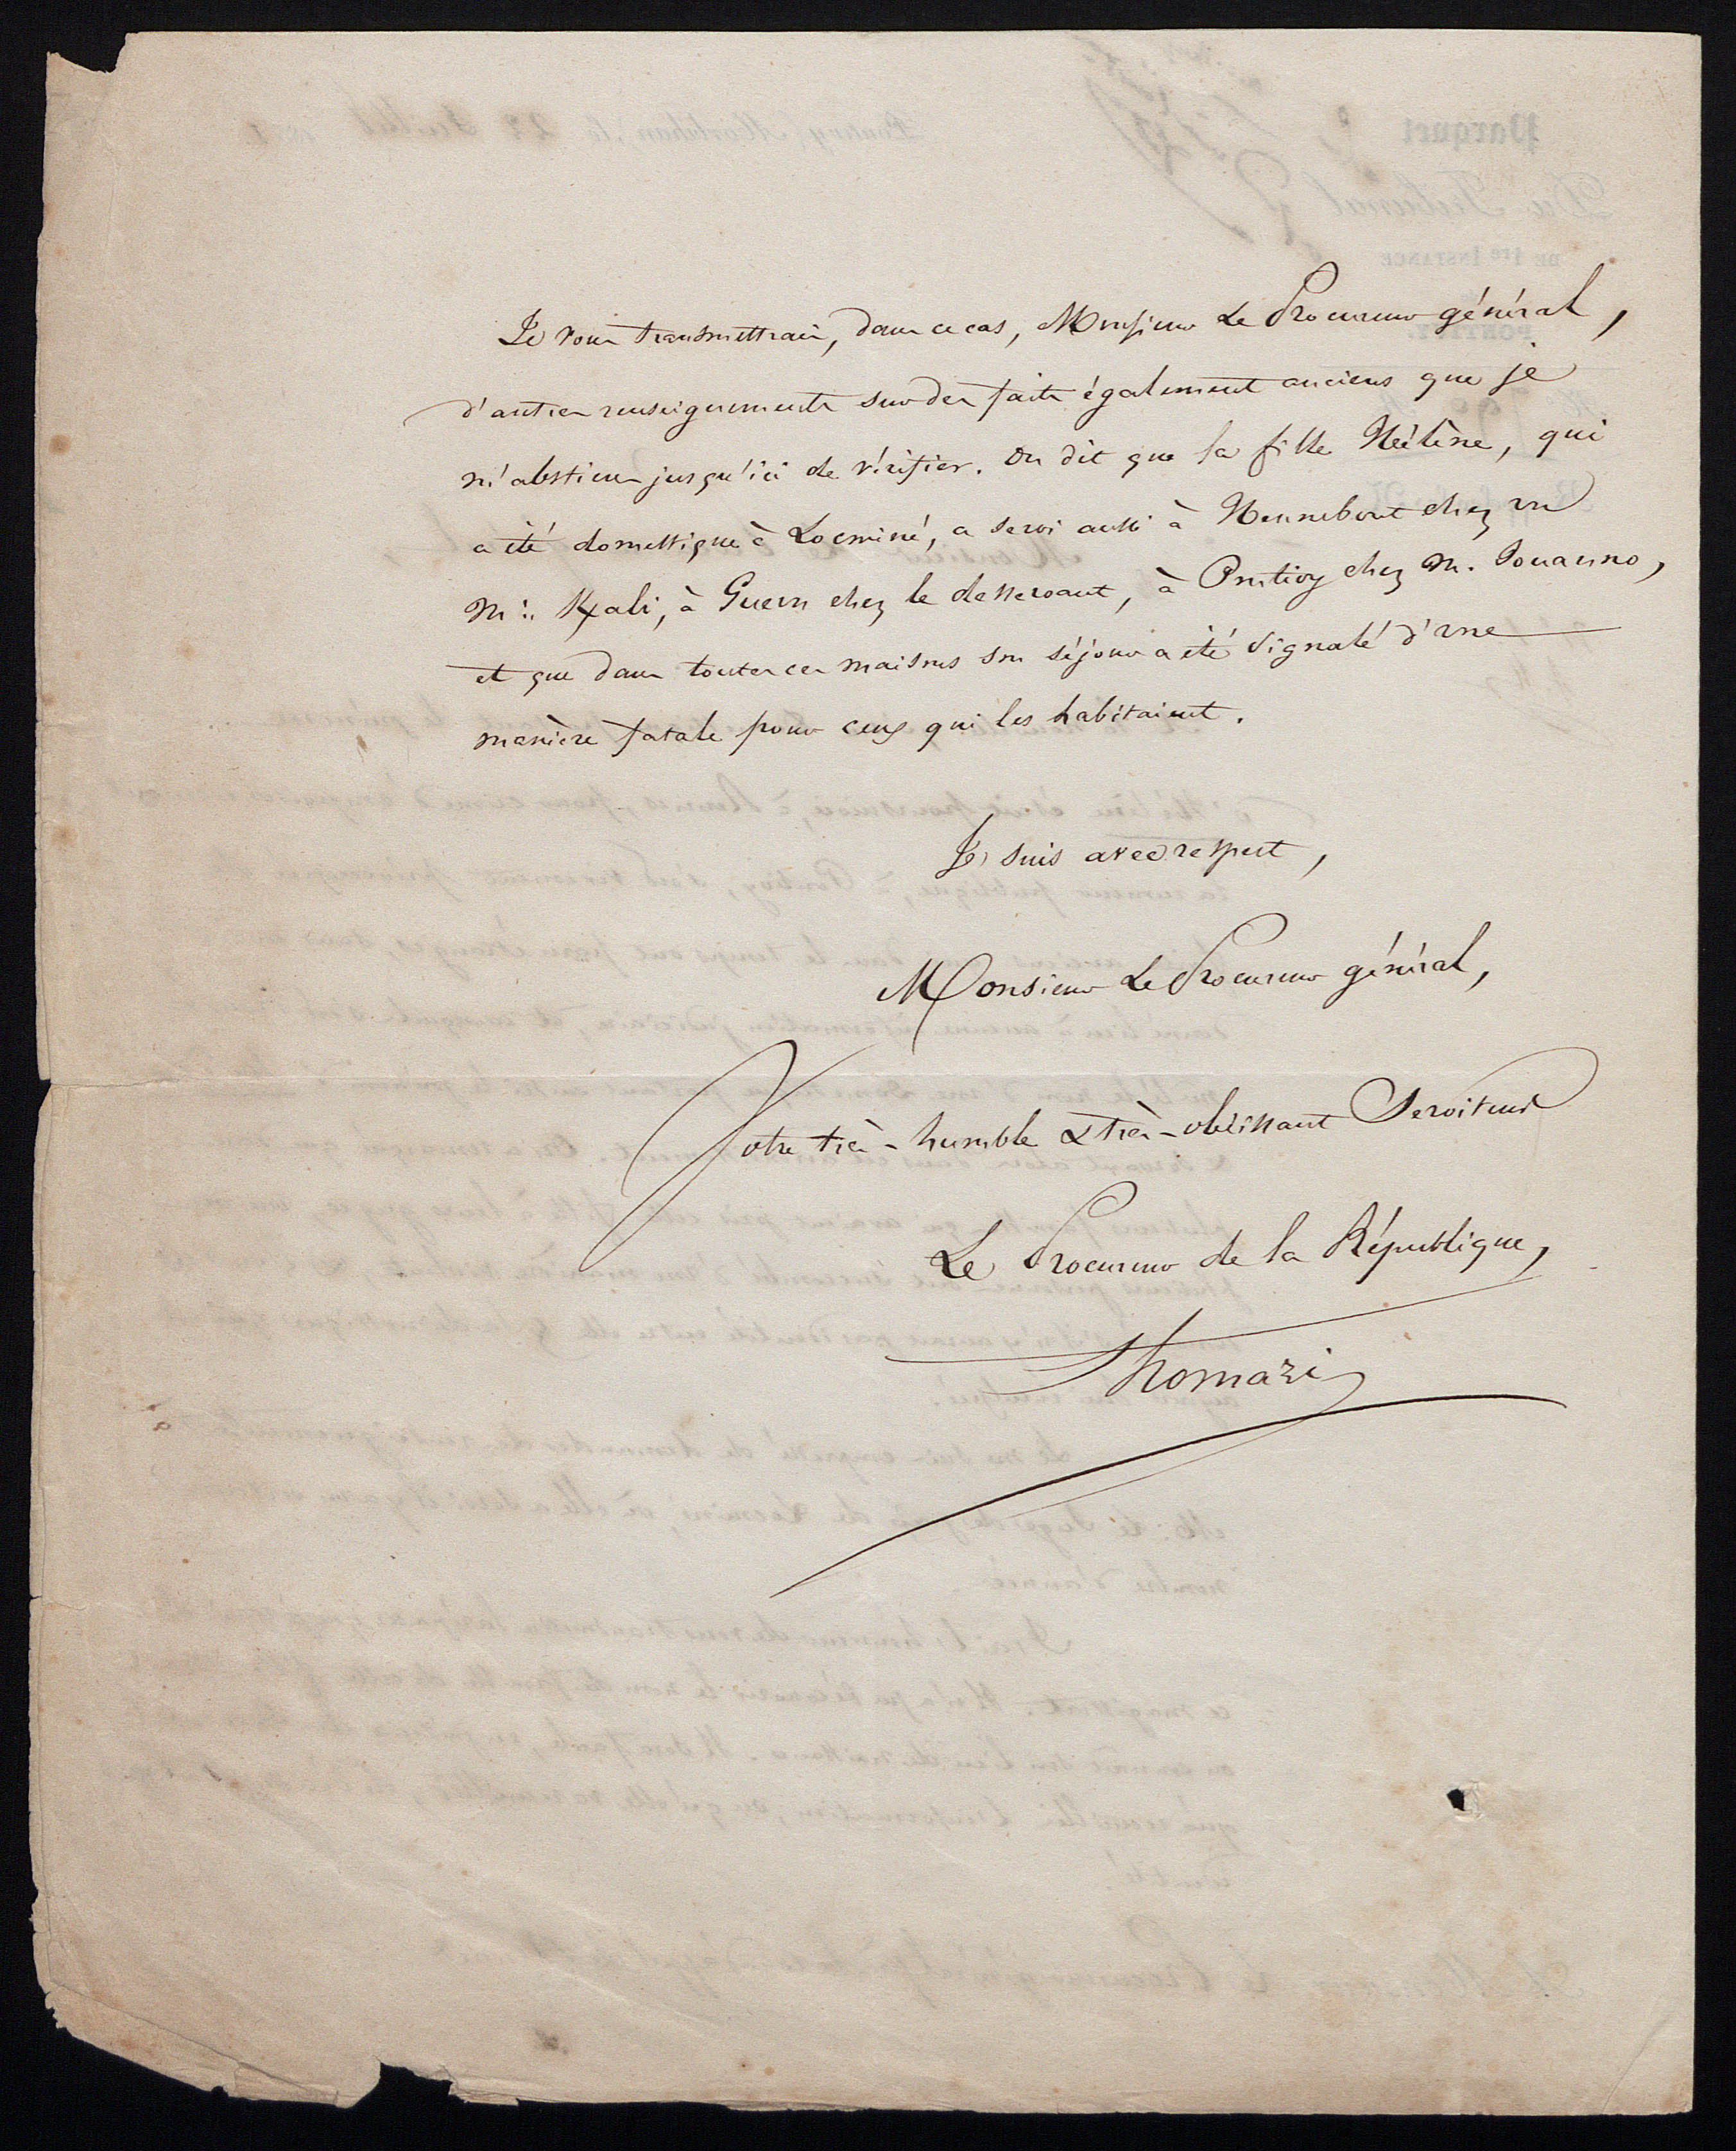 Je vous transmettrais, dans ce cas, Monsieur Le Procureur général,
d'autres renseignements sur des faits également anciens que je
m'abstiens jusqu'ici de vérifier. On dit que la fille Hélène, qui
a été domestique à Locminé, a servi aussi à Hennebont chez un
Mr. Kali, à Guern chez le desservant, à Pontivy chez M. Jouanno,
et que dans toutes ces maisons son séjour a été signalé d'une
manière fatale pour ceux qui les habitaient.
Je suis avec respect,
Monsieur Le Procureur général,
Votre très-humble & très-obéissant Serviteur
Le Procureur de la République,
Thomazi